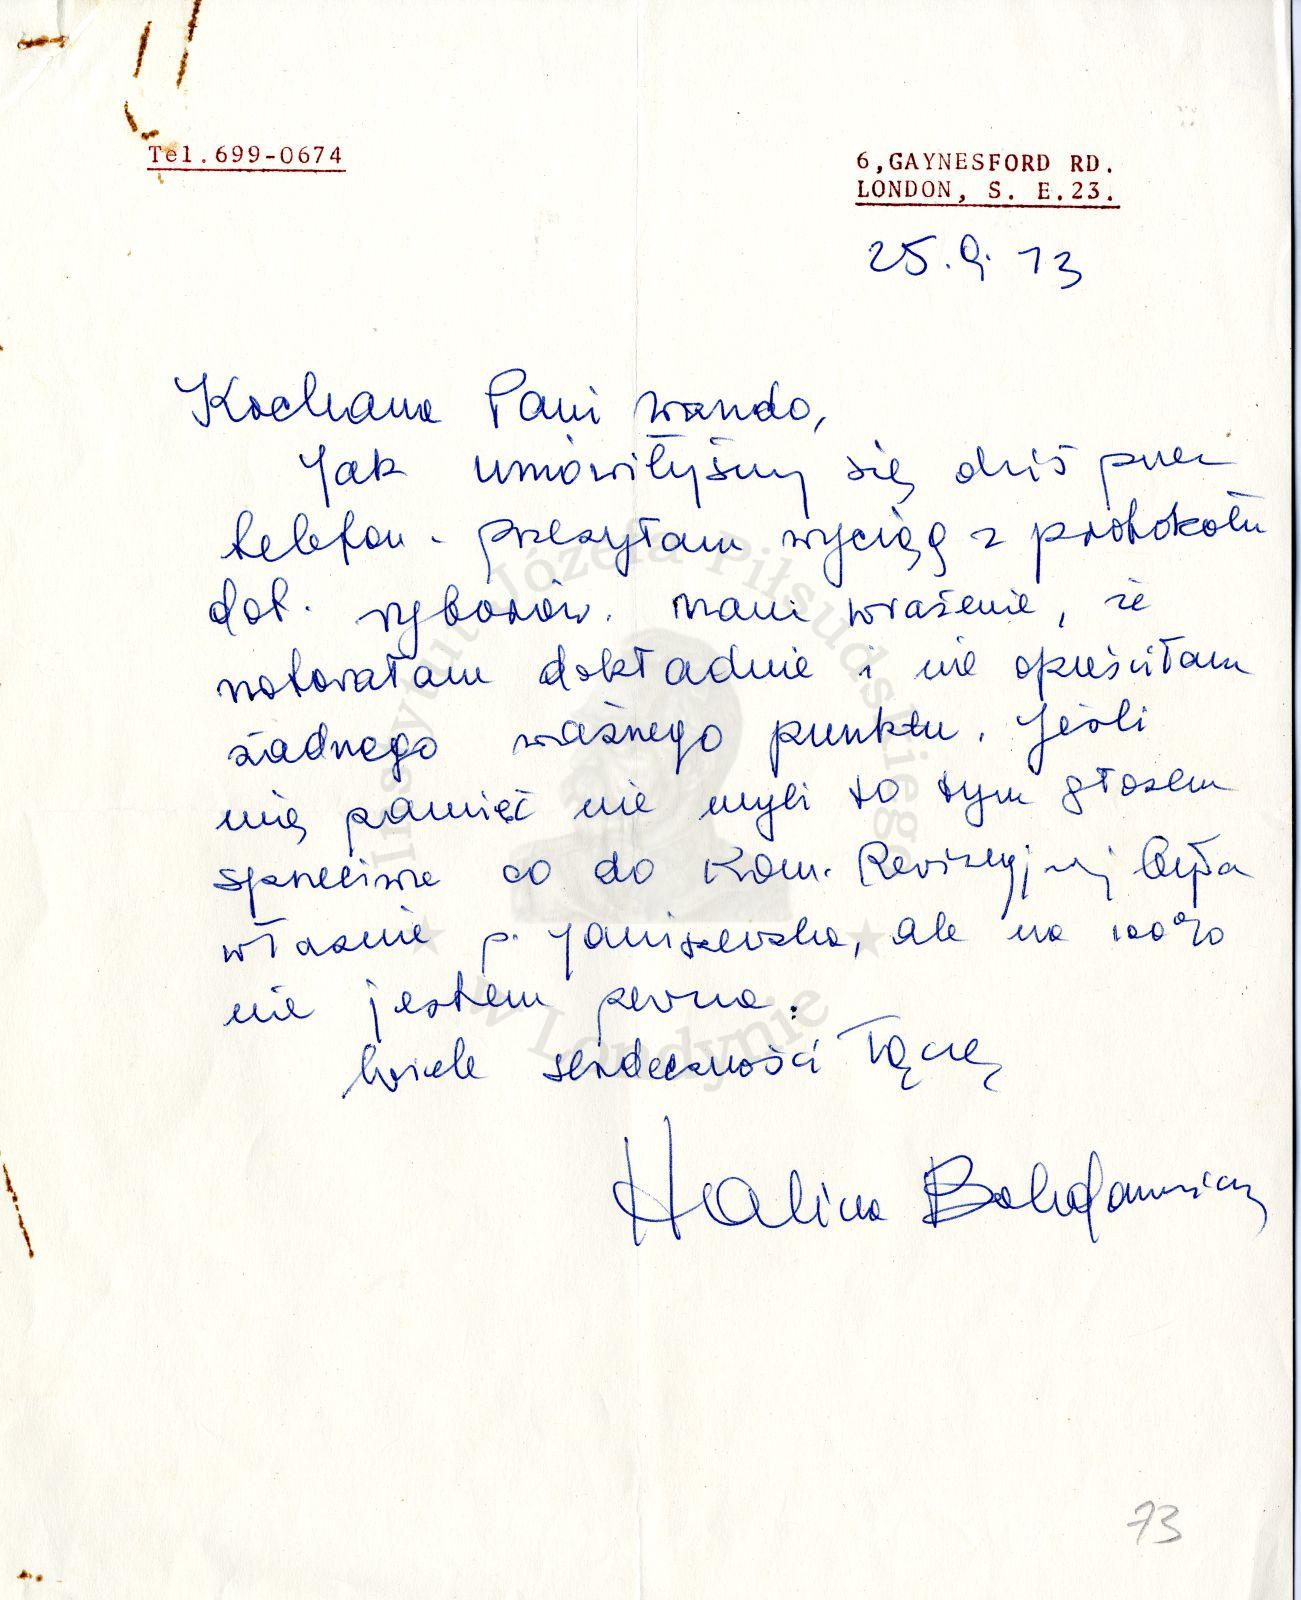 Tel.699-0674
6,GAYNESFORD RD.
LONDON, S. E.23.
25.9.73
Kochana Pani Wando,
Jak umówiłyśmy się dziś przez
telefon - przesyłam wyciąg z protokółu
dot. wyborów. Mam wrażenie, że
notowałam dokładnie i nie opuściłam
żadnego ważnego punktu. Jeśli
mię pamięć nie myli to tym głosem
sprzeciwu co do Kom. Rewizyjnej była
właśnie p. Janiszewska, ale na 100%
nie jestem pewna.
Wiele serdeczności łączę
Halina Bohdanowicz
73
Instytut Józefa Piłsudskiego
w Londynie